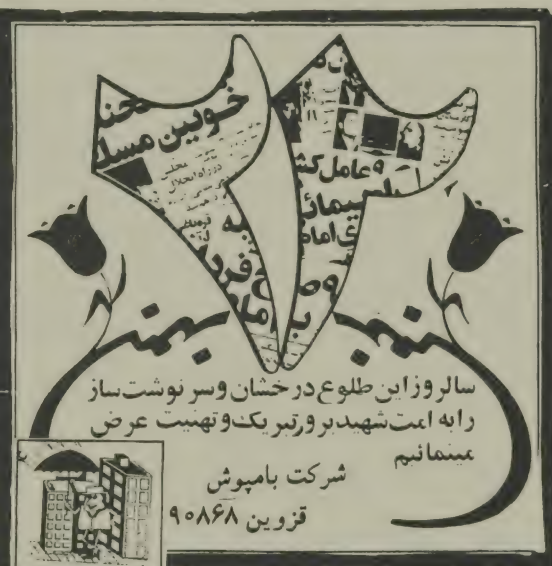 ۲۲
خونین
بهمن بهمن
سالروز این طلوع درخشان و سرنوشت ساز
را به امت شهیدپرور تبریک و تهنیت عرض
مینمائیم
شرکت بامپوش
قزوین ۹۰۸۶۸